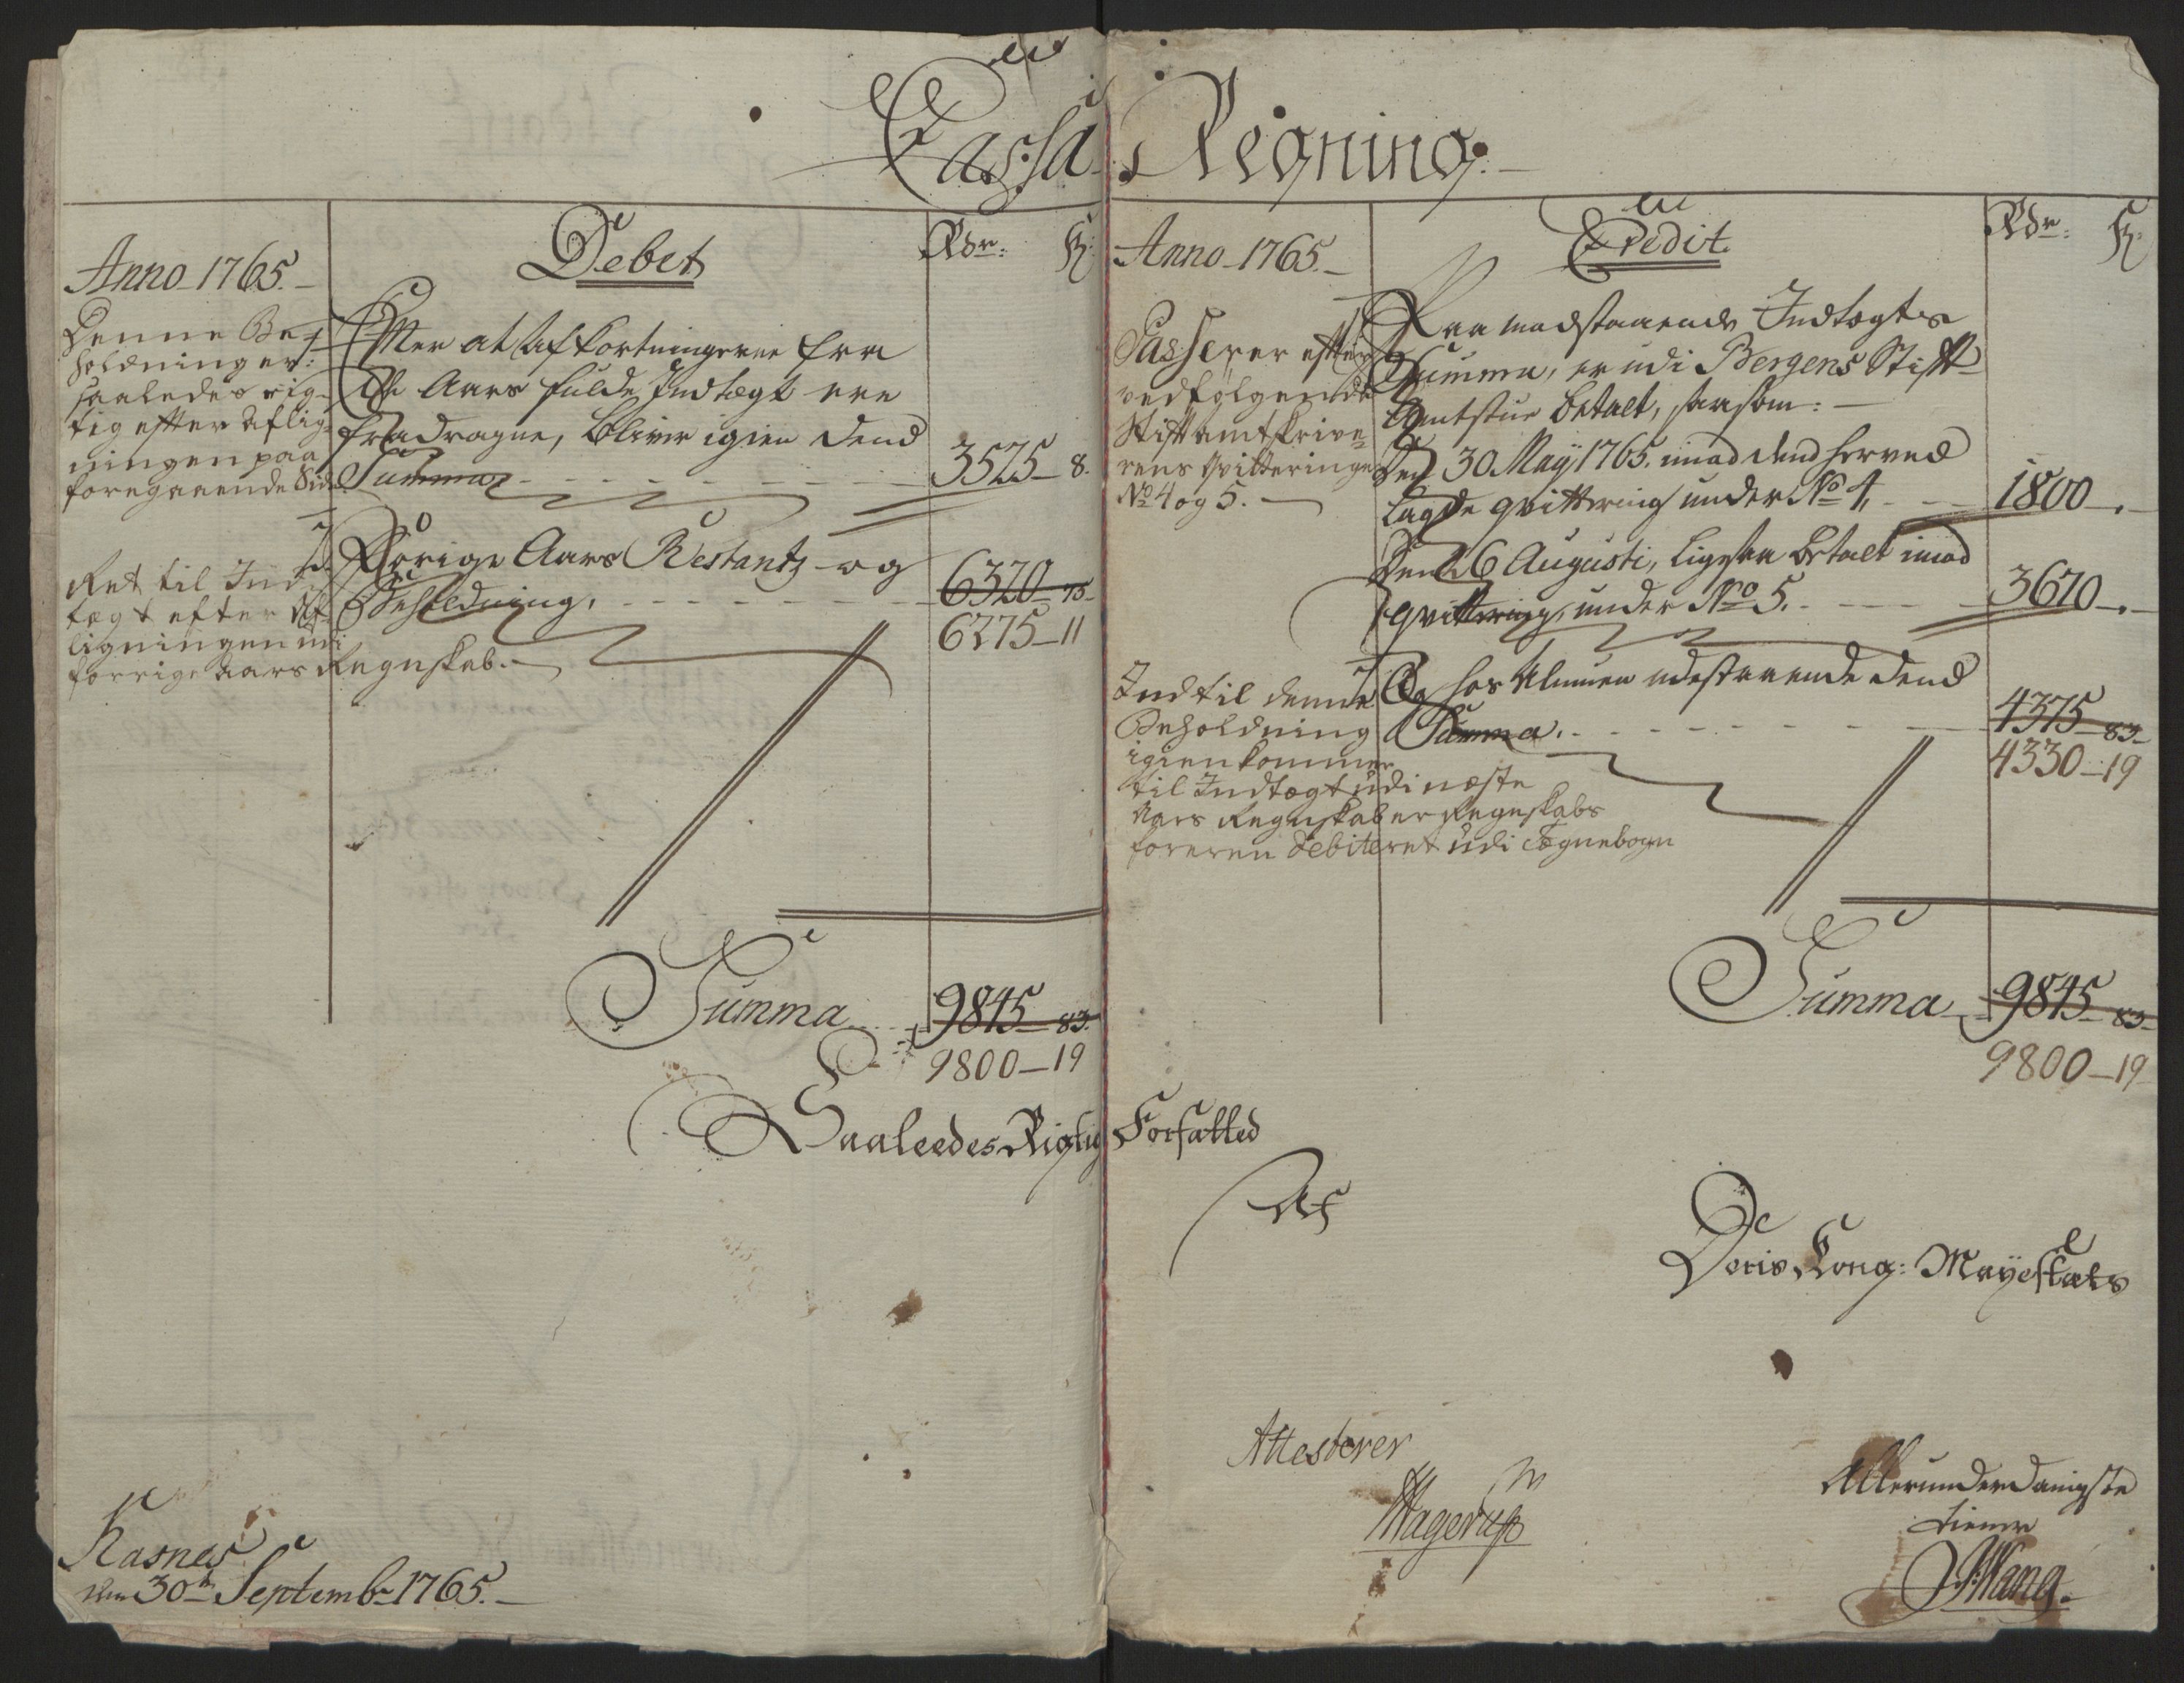 Cassa Regning.
Anno 1765.
Debet
Rdr: ß:
Denne Be-
holdning er
saaledes rig-
tig efter Aflig-
ningen paa
foregaaende Side
Efter at Afkortningerne fra
Aars fulde Indtægt ere
fradragne, bliver igien dend
Summa 3525 8.
Ret til Ind-
tægt efter Af-
ligningen udi
forrige Aars Regnskab.
Forrige Aars Restantz og
Beholdning, 6320
6275 11
Summa 9845 83.
9800 19
Anno 1765.
Credit
Rdr: ß:
Passerer efter
vedfølgende
Stiftamtskrive-
rens Qvitteringer
No 4 og 5.
Paa modstaaende Indtægts
Summa, er udi Bergens Stift
Amtstue betalt, saasom:
Den 30 May 1765. imod dend herved
lagde qvittering under No 4. 1800
Den 26 Augusti, ligesaa betalt imod
qvittering, under No 5. 3670
Ind til denne
Beholdning
igien kommer
til Indtægt udi næste
Aars Regnskab er Regnskabs
føreren debiteret udi Tegnebogen
Og hos Almuen udestaaende dend
Summa. 4375 83
4330 19
Summa 9845 83
9800 19
Saaleedes Rigtig Forfatted
Af
Deris Kong: Mayestæts
Attesterer
Hagerup
Allerunderdanigste
tiener
Wang.
den 30te Septembr 1765.